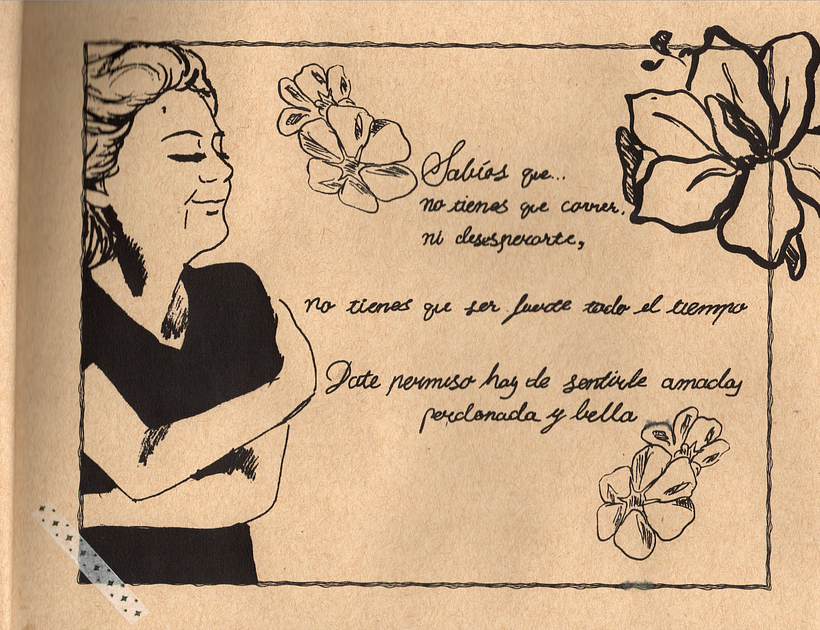 Sabías que...
no tienes que correr,
ni desesperarte,
no tienes que ser fuerte todo el tiempo
Date permiso hoy de sentirte amada,
perdonada y bella